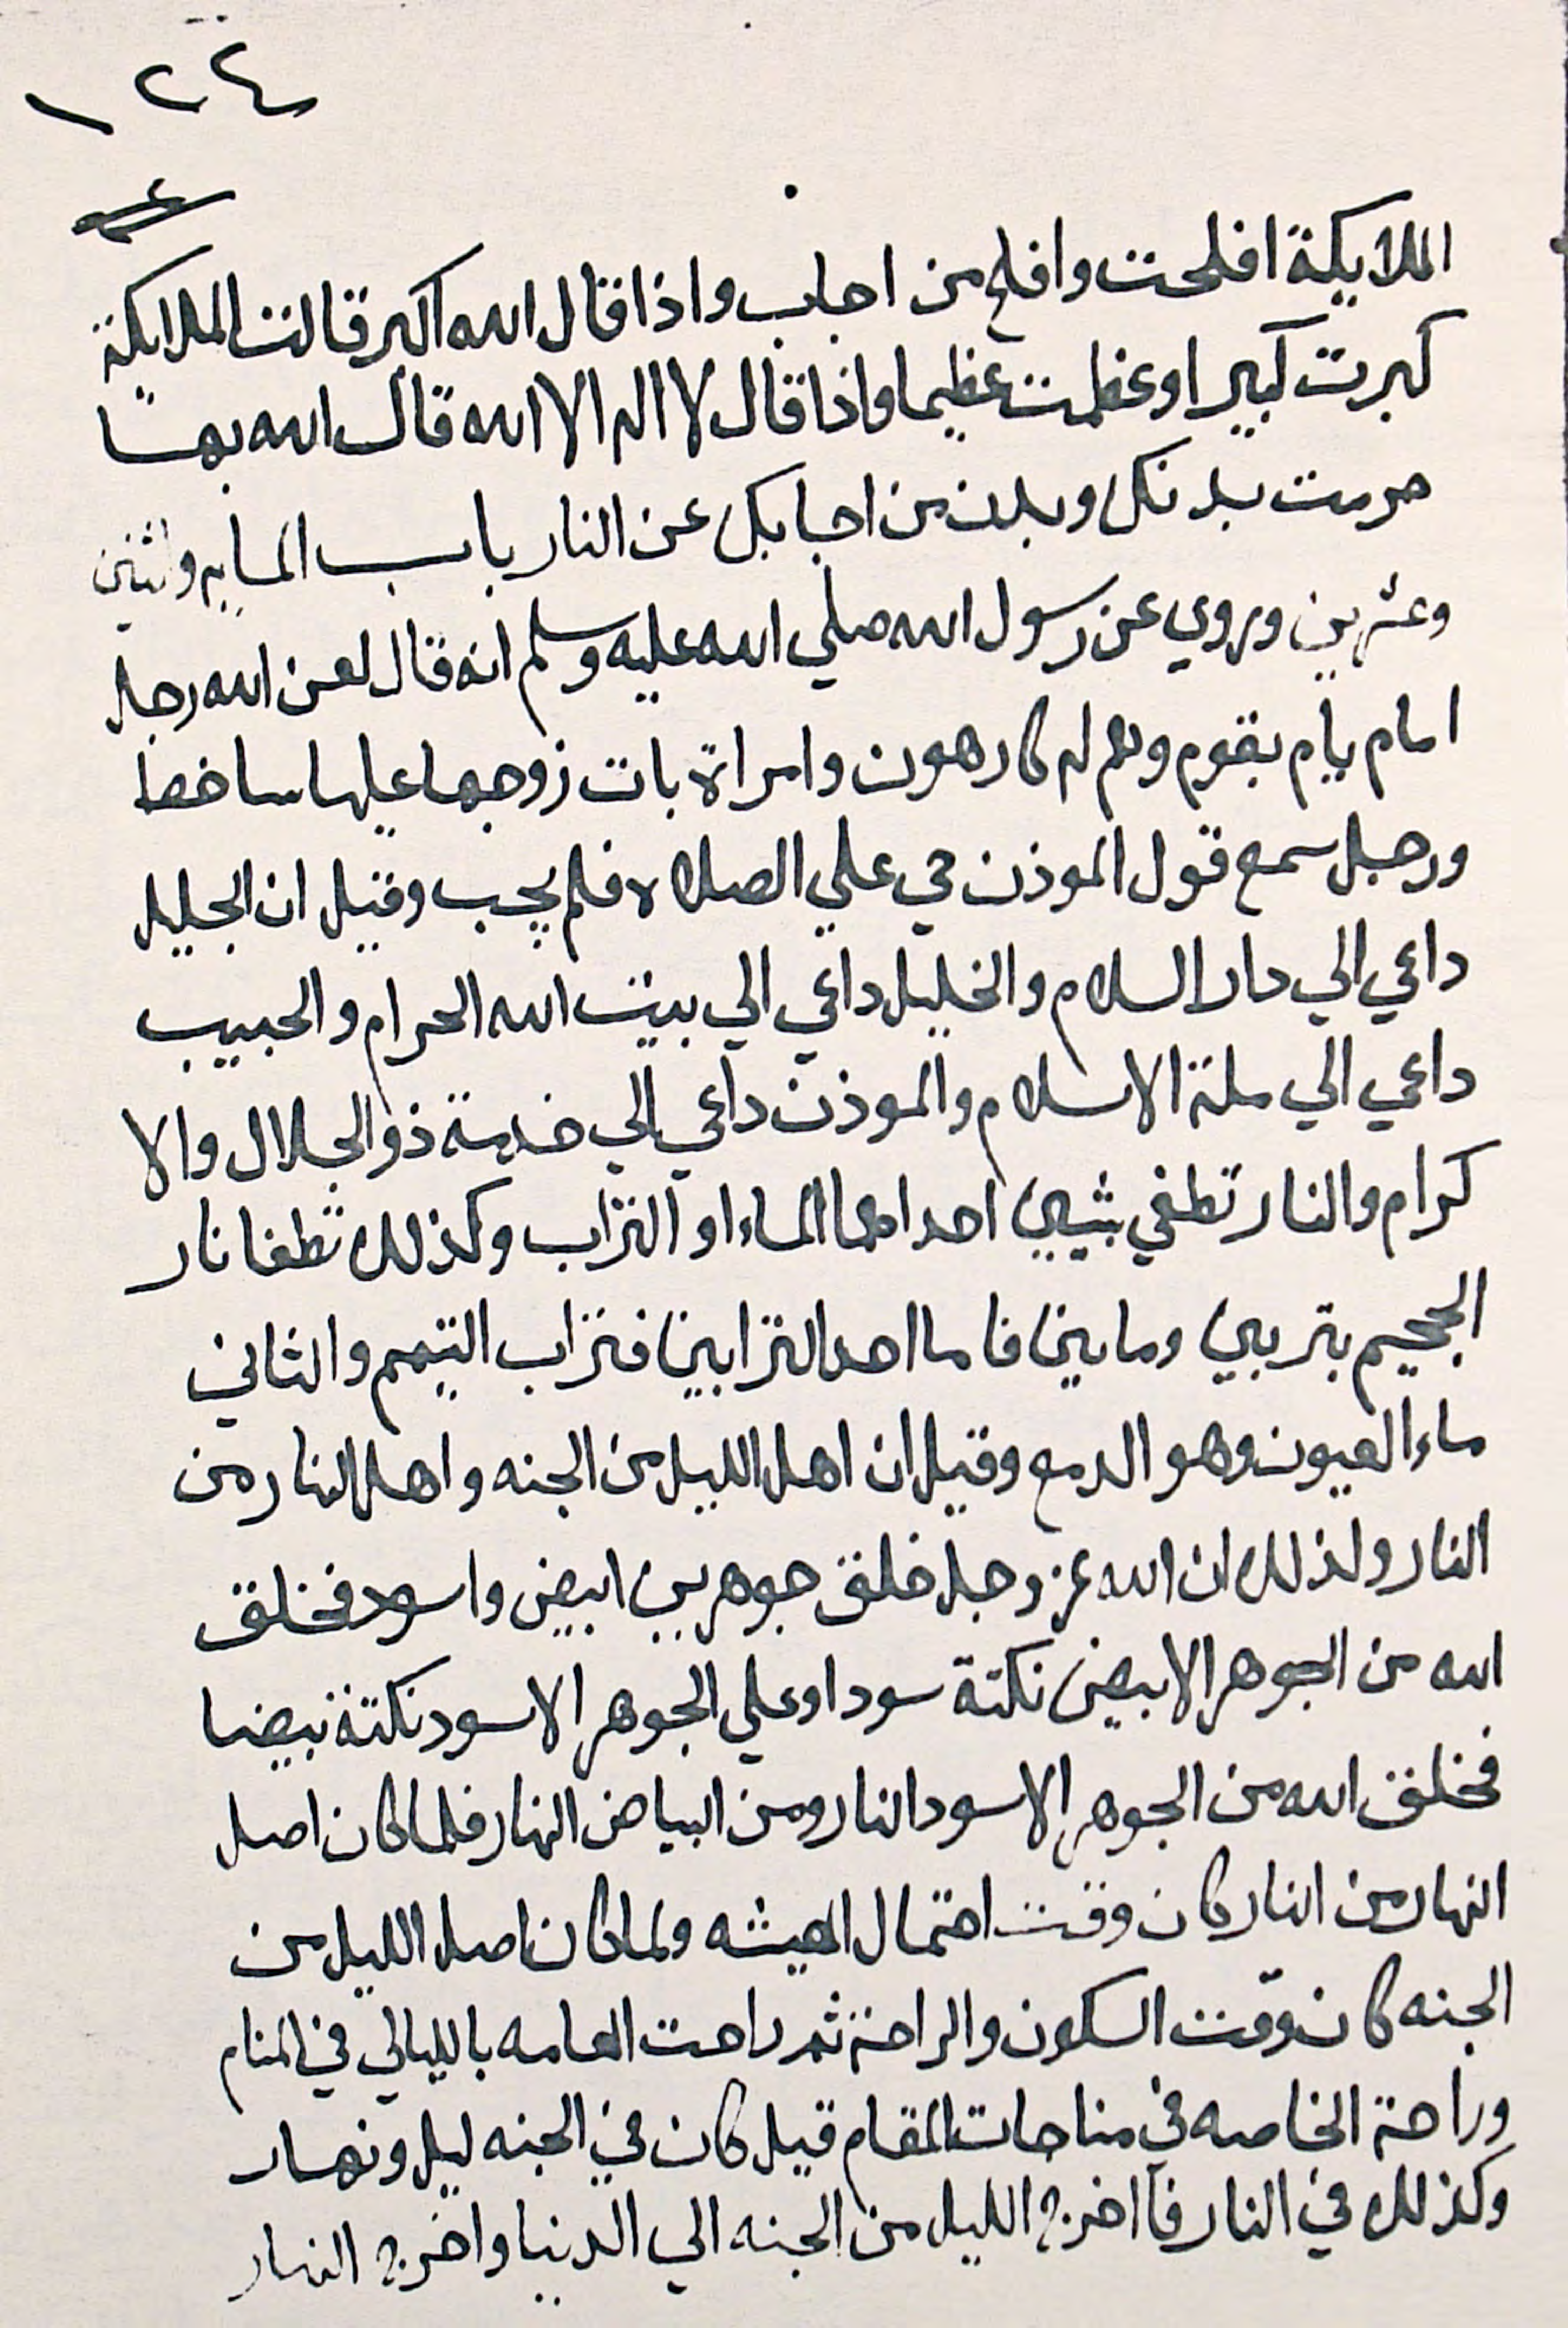 ١٢٤
الملايكة افلحت وافلح من اجاب واذا قال الله اكبر قالت الملايكة
كبرت كبيرا وعظمت عظيما واذا قال لا اله الا الله قال الله بهما
حرمت بدنكل وبدن من اجابكل عن النار باب المايه واثنين
وعشرين وروي عن رسول الله صلي الله عليه وسلم انه قال لعن الله رجل
امام يأم بقوم وهم له كارهون وامراة بات زوجها عليها ساخط
ورجل سمع قول الموذن حي علي الصلاه فلم يجب وقيل ان الجليل
داعي الي دار السلام والخليل داعي الي بيت الله الحرام والحبيب
داعي الي ملة الاسلام والموذن داعي الي خدمة ذو الجلال والا
كرام والنار تطفي بشيين احداهما الماء او التراب وكذلك تطفا نار
الجحيم بتربين وماين فاما احد الترابين فتراب التيمم والثاني
ماء العيون وهو الدمع وقيل ان اهل الليل من الجنه واهل النهار من
النار ولذلك ان الله عز وجل خلق جوهرين ابيض واسود فخلق
الله من الجوهر الابيض نكتة سودا وعلي الجوهر الاسود نكتة بيضا
فخلق الله من الجوهر الاسود النار ومن البياض النهار فلما كان اصل
النهار من النار كان وقت احتمال المعيشه ولما كان اصل الليل من
الجنه كان وقت السكون والراحة ثم راحت العامه بالليالي في المنام
وراحة الخاصه في مناجات المقام قيل كان في الجنه ليل ونهار
وكذلك في النار فأ اخرج الليل من الجنه الي الدنيا واخرج النهار